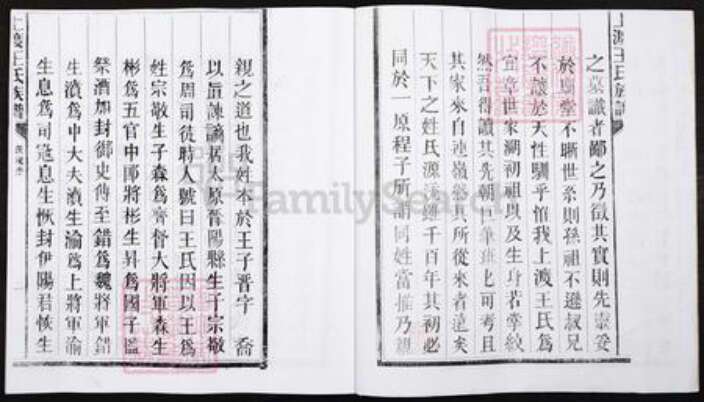 上渡王氏族譜
之墓識者鄙之乃徵其實則先靈妥
於廟堂不晰世系則孫祖不遜叔兄
不讓於天性馴乎怕我上渡王氏為
宜章世家溯初祖以及生身若掌紋
然吾得讀其先朝 筆班 可考且
其家來自連嶺 其所從來者遠矣
天下之姓氏源流雖千百年其初必
同於一原程子所謂同姓當推乃親
親之道也我姓本於王子晉字 喬
以旨諫謫居太原晉陽縣生子宗敬
為周司徒時人號曰王氏因以王為
姓宗敬生子森為齊督大將軍森生
彬為五官中郎將彬生昇為國子監
祭酒加封御史傳至錯為魏將軍錯
生漬為中大夫漬生渝為上將軍渝
生息為司寇息生恢封伊陽君恢生
上渡王氏族譜
FamilySearch